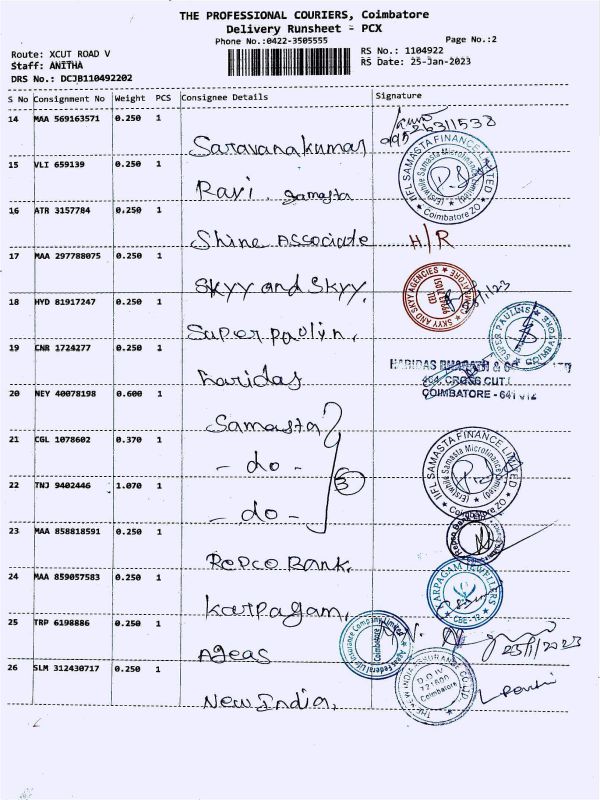 THE PROFESSIONAL COURIERS, Coimbatore
Delivery Runsheet - PCX
Phone No.:0422-3505555
Page No.:2
Route: XCUT ROAD V
RS No.: 1104922
Staff: ANITHA
RS Date: 25-Jan-2023
DRS No.: DCJB110492202
S No Consignment No Weight PCS Consignee Details Signature
14 MAA 569163571 0.250 1 Saravanakumar
15 VLI 659139 0.250 1 Ravi. Samasta
IIFL SAMASTA FINANCE LIMITED
(Erstwhile Samasta Microfinance Limited)
Coimbatore ZO
16 ATR 3157784 0.250 1 Shine Associate H/R
17 MAA 297788075 0.250 1 Skyy and Skyy.
SKYY AND SKYY AGENCIES
18 HYD 81917247 0.250 1 Superpaulin.
SUPER PAULINS
COIMBATORE
19 CNR 1724277 0.250 1 haridas
HARIDAS
204, CROSS CUT
COIMBATORE - 641 012
20 NEY 40078198 0.600 1 Samasta
21 CGL 1078602 0.370 1 - do -
22 TNJ 9402446 1.070 1 - do - 3
IIFL SAMASTA FINANCE LIMITED
(Erstwhile Samasta Microfinance Limited)
Coimbatore ZO
23 MAA 858818591 0.250 1 Repco Bank.
24 MAA 859057583 0.250 1 Karpagam.
KARPAGAM JEWELLERS
CBE - 12
25 TRP 6198886 0.250 1 Ageas
Ageas Federal Life Insurance Company Limited
Coimbatore
25/1/2023
26 SLM 312430717 0.250 1 New India.
THE NEW INDIA ASSURANCE CO. LTD.
D O IV
721600
Coimbatore